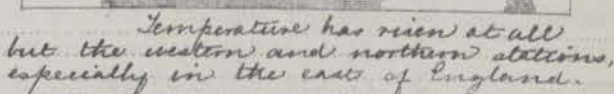 Temperature has risen at all
but the western and northern stations,
especially in the east of England.